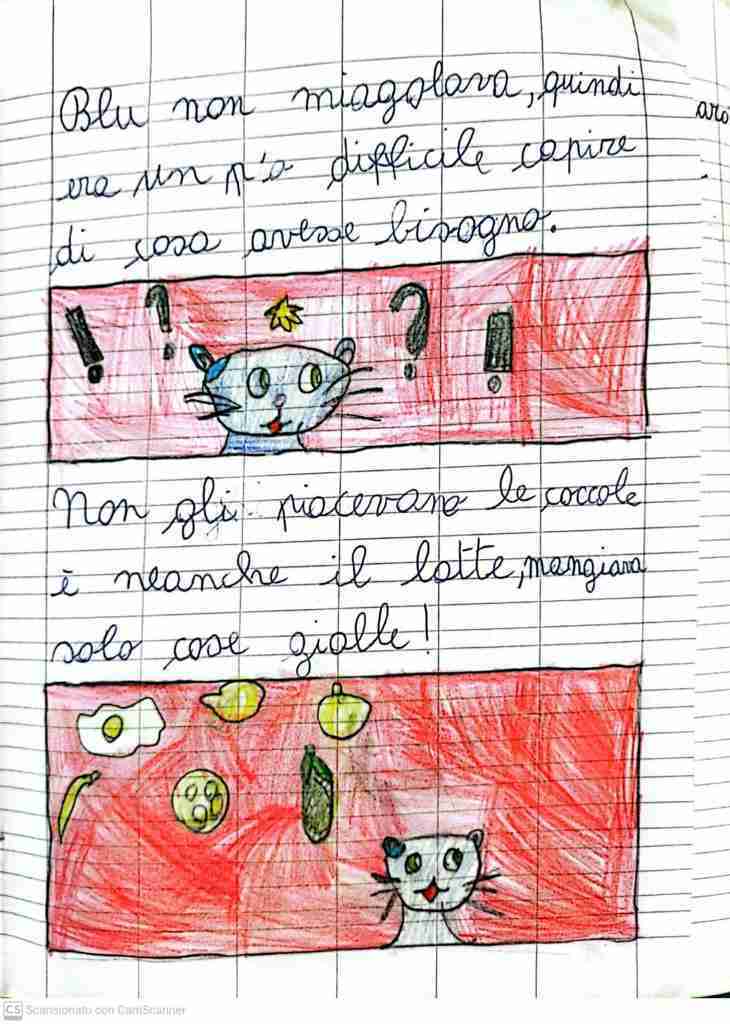 Blu non miagolava, quindi
era un p'ò difficile capire
di cosa avesse bisogno.
! ? ? !
Non gli piacevano le coccole
è neanche il latte, mangiava
solo cose gialle!
CS Scansionato con CamScanner